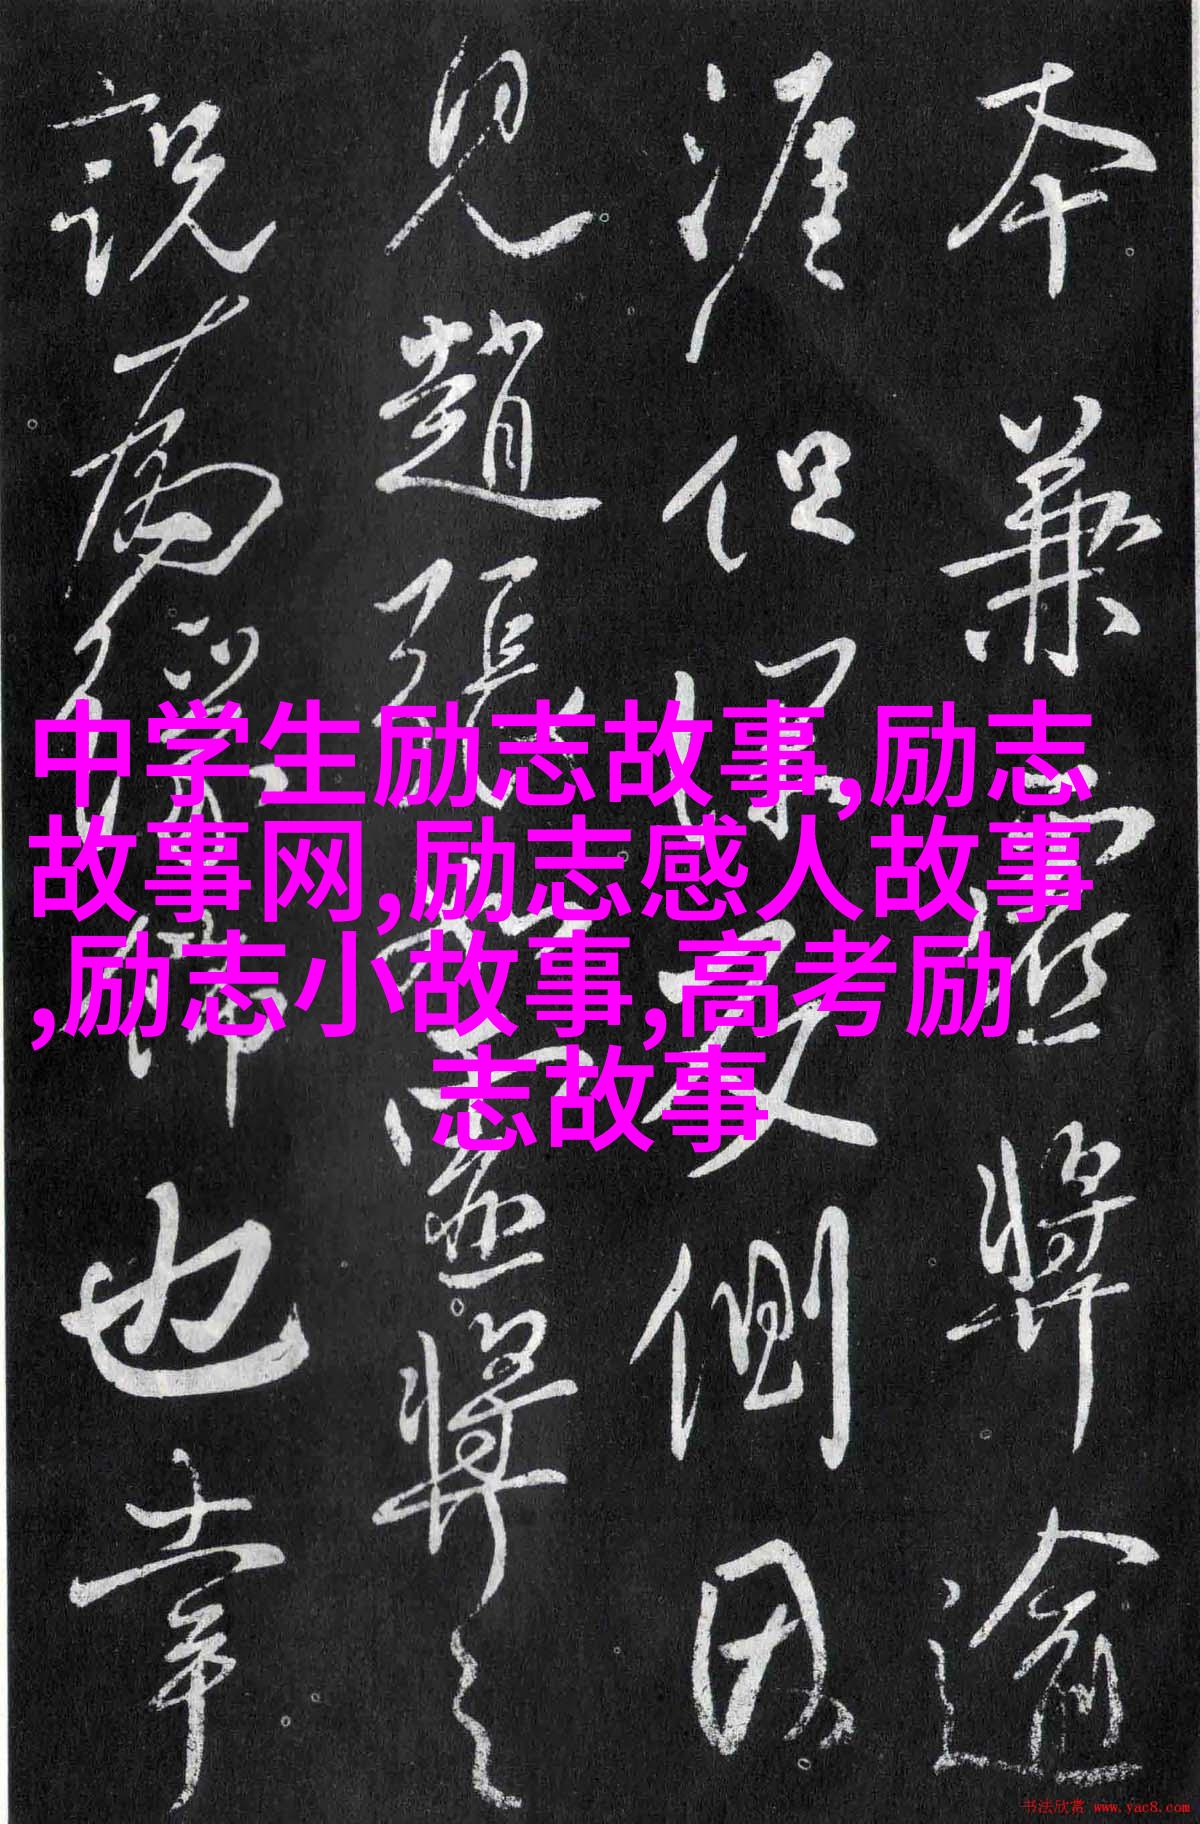 中学生励志故事,励志
故事网,励志感人故事
,励志小故事,高考励
志故事
本兼將逾
涯但側因
見趙張將之
說為也章
书法欣赏 www.yac8.com